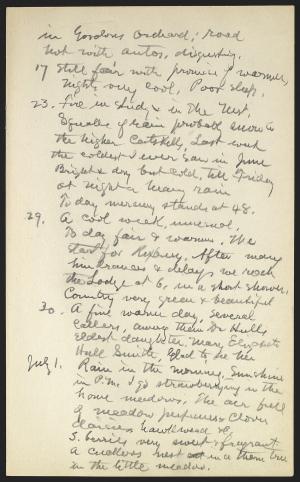 in Gordons orchard; road
hot with autos, disgusting.
17 Still fair with promise of warmer,
Nights very cool, Poor sleep.
23. Fire in Study & in the Nest.
Squalls of rain probably snow in
the higher Catskills, Last week
the coldest I ever saw in June
Bright & dry but cold, till Friday
at night a heavy rain
To day mercury stands at 48.
29. A cool week, unusual.
To day fair & warmer. We
start for Roxbury. After many
hindrances & delays we reach
the Lodge at 6, in a short shower,
Country very green & beautiful
30. A fine warm day. Several
callers, among them Dr Hulls
eldest daughter, Mary Elizabeth
Hull Smith, Glad to see her
July 1. Rain in the morning, Sunshine
in P.M. I go strawberrying in the
home meadows. The air full
of meadow perfumes – Clover
daisies hawkweed &c.
S. berries very sweet & fragrant
A cuckoos nest in a thorn tree
in the little meadow.